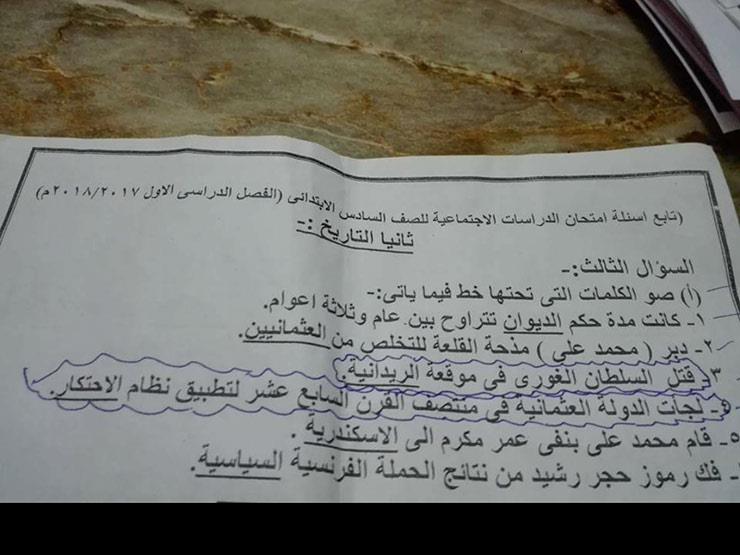 (تابع اسئلة امتحان الدراسات الاجتماعية للصف السادس الابتدائى (الفصل الدراسى الاول ٢٠١٨/٢٠١٧ م)
ثانيا التاريخ :-
السؤال الثالث:-
(أ) صو الكلمات التى تحتها خط فيما ياتى:-
١- كانت مدة حكم الديوان تتراوح بين عام وثلاثة اعوام.
٢- دبر ( محمد على ) مذحة القلعة للتخلص من العثمانيين.
٣- قتل السلطان الغورى فى موقعة الريدانية.
٤- لجات الدولة العثمانية فى منتصف القرن السابع عشر لتطبيق نظام الاحتكار.
٥- قام محمد على بنفى عمر مكرم الى الاسكندرية .
- فك رموز حجر رشيد من نتائج الحملة الفرنسية السياسية.